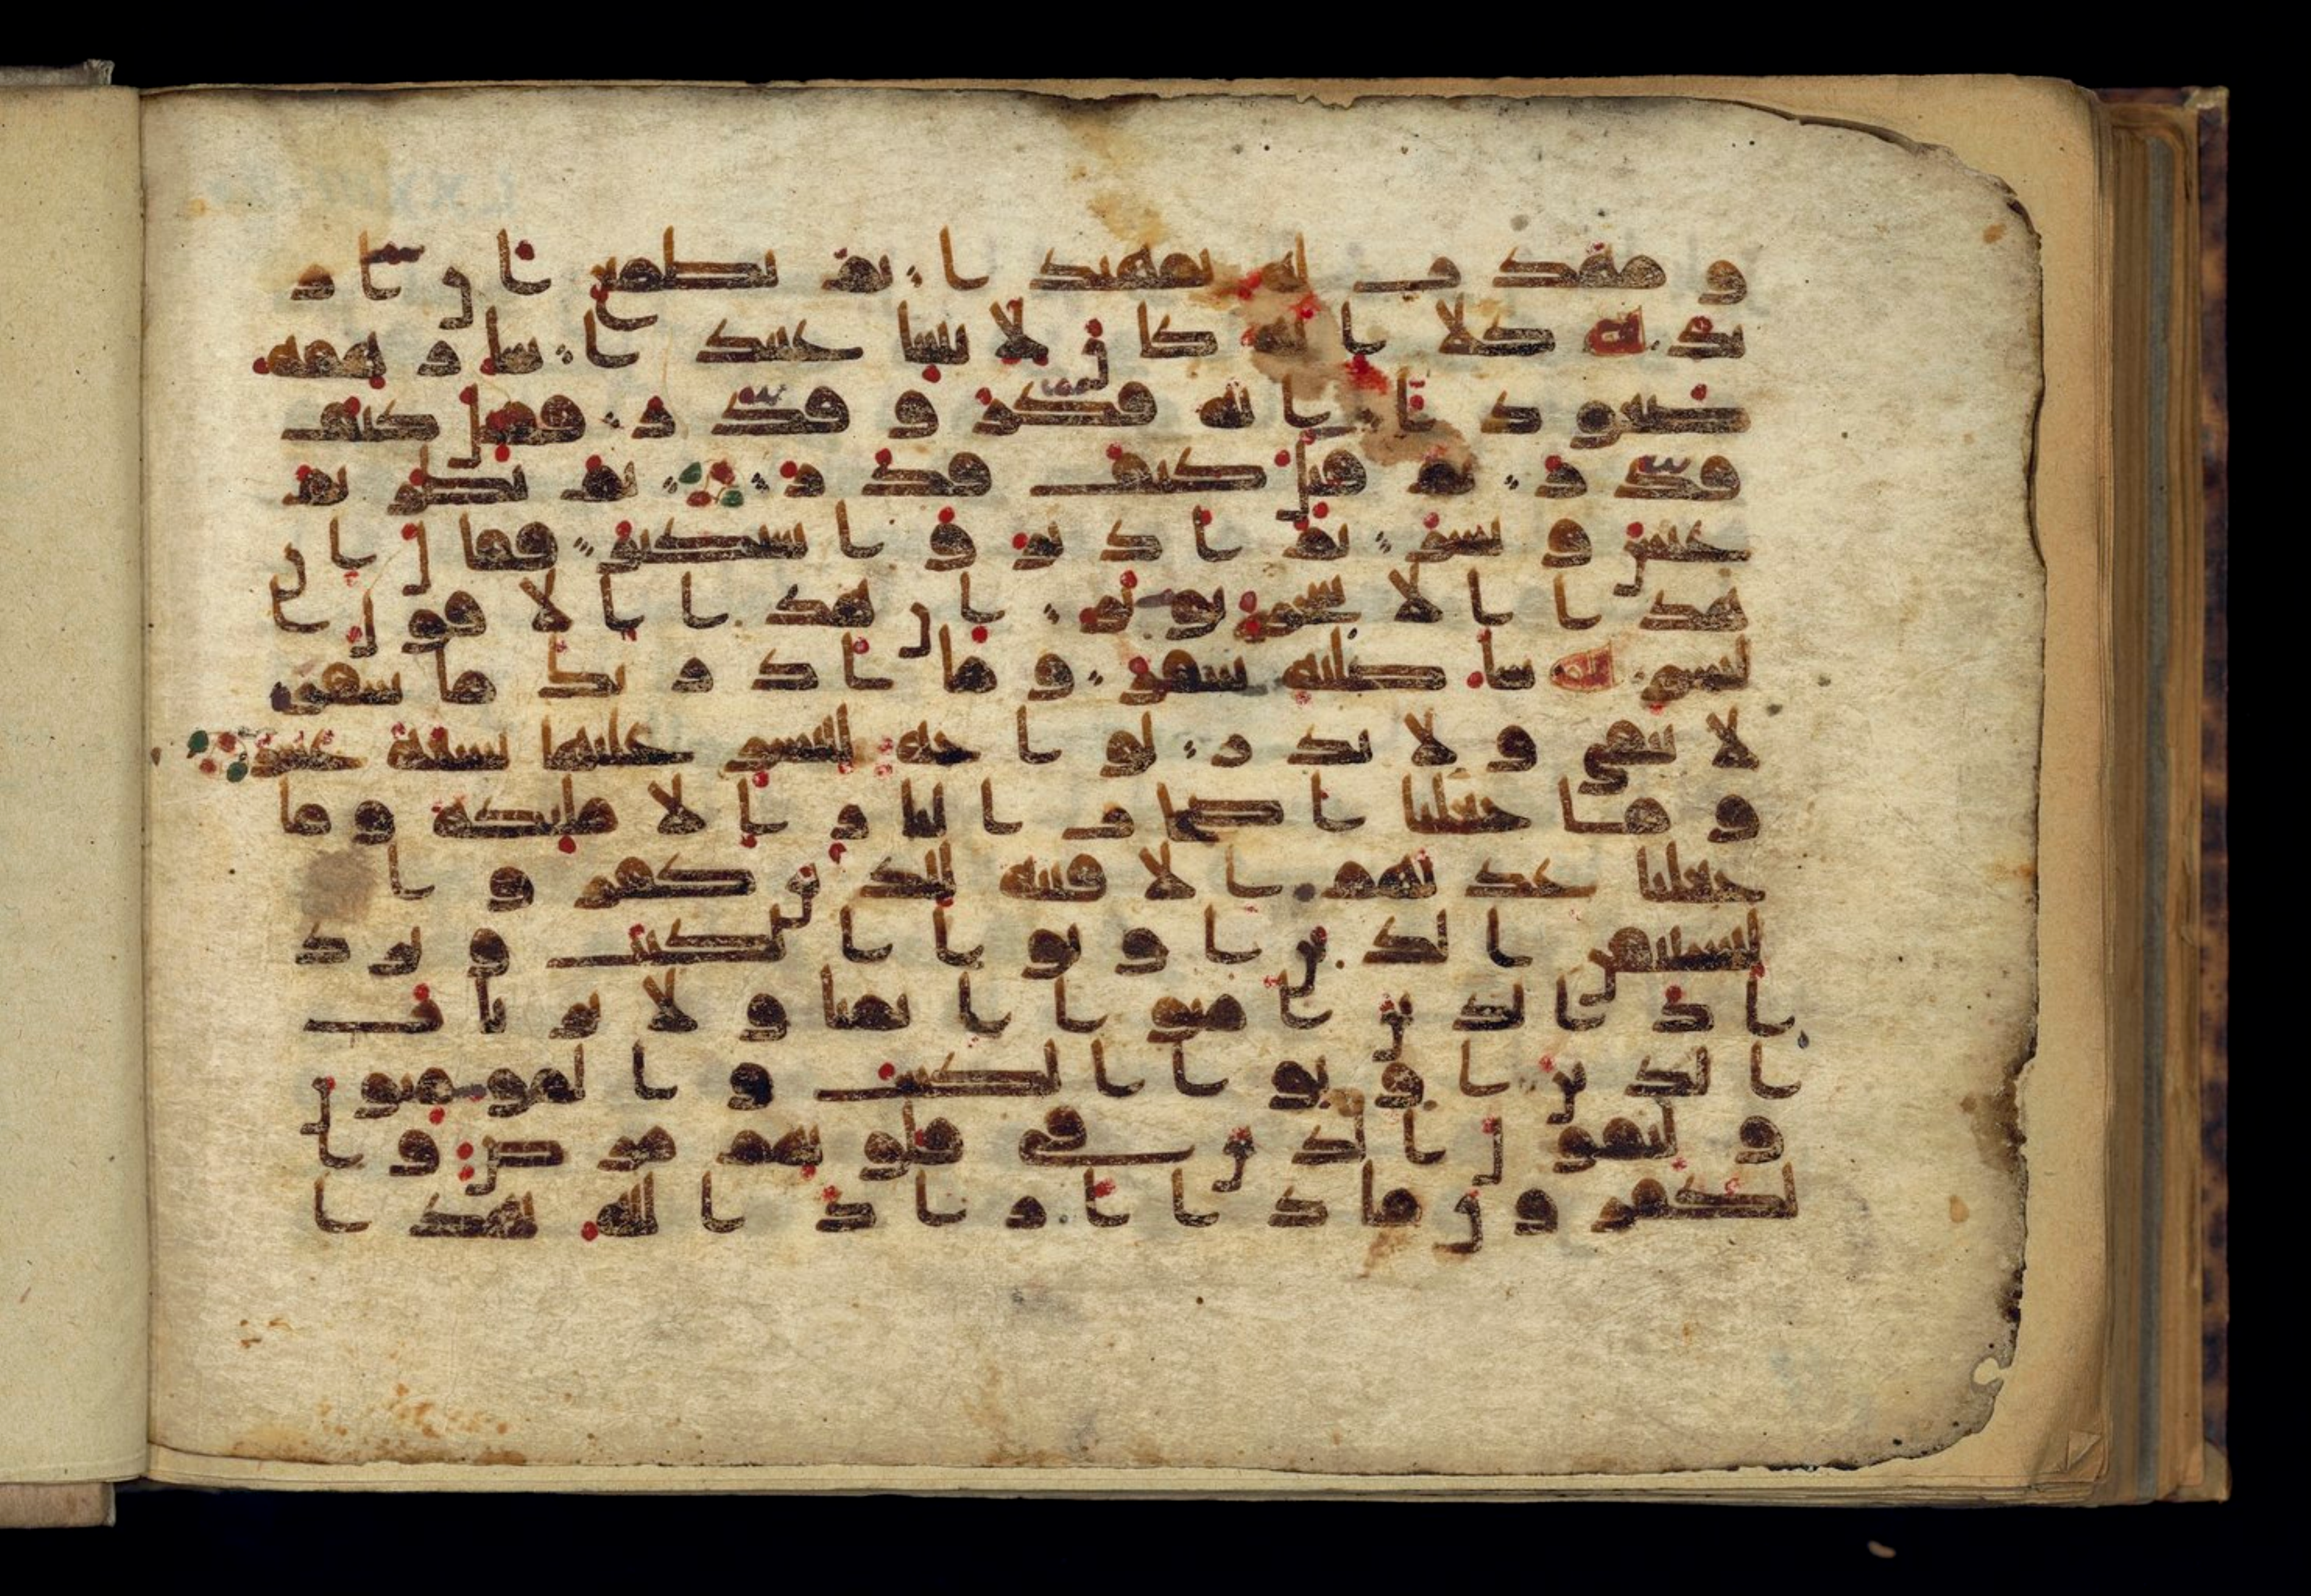 و مهدت له تمهيدا ثم يطمع أن أز
يد كلا إنه كان لايتنا عنيدا سأرهقه
صعودا إنه فكر و قدر فقتل كيف
قدر ثم قتل كيف قدر ثم نظر ثم
عبس و بسر ثم أدبر و استكبر فقال إن
هذا إلا سحر يؤثر إن هذا إلا قول ا
لبشر سأصليه سقر و ما أدريك ما سقر
لا تبقي و لا تذر لواحة للبشر عليها تسعة عشر
و ما جعلنا أصحب النار إلا ملئكة و ما
جعلنا عدتهم إلا فتنة للذين كفروا
ليستيقن الذين أوتوا الكتب و يزد
اد الذين امنوا إيمنا و لا يرتاب
الذين أوتوا الكتب و المؤمنون
و ليقول الذين في قلوبهم مرض و ا
لكفرون ماذا أراد الله بهذا